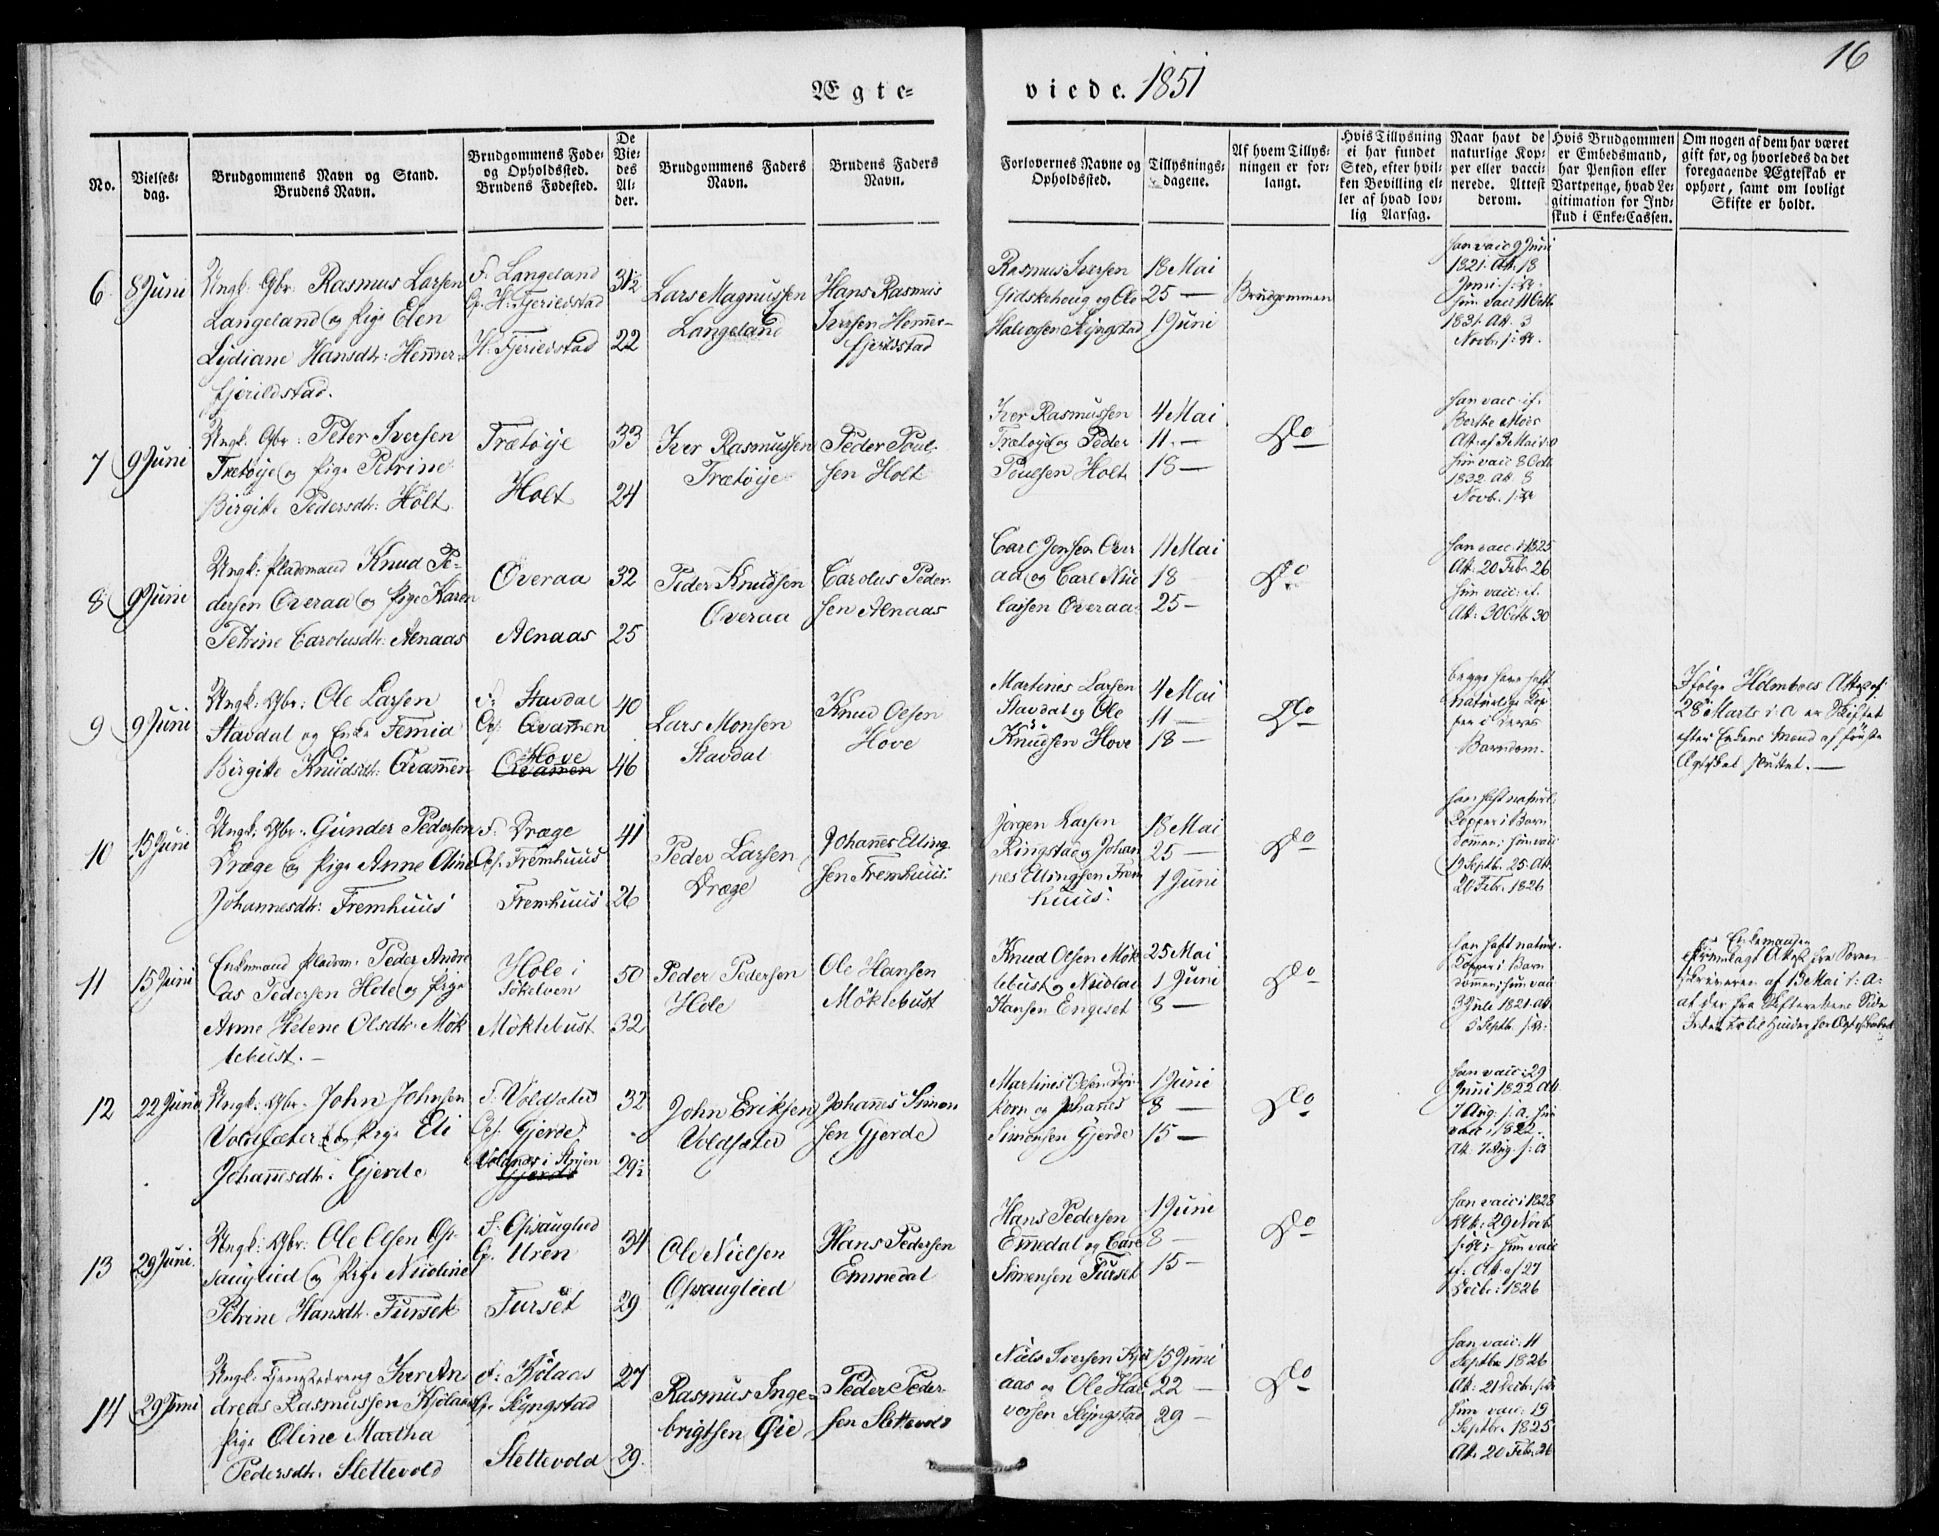 16
Ægte-
viede. 1851
No.
Vielses-
dag.
Brudgommens Navn og Stand.
Brudens Navn.
Brudgommens Føde-
og Opholdssted.
Brudens Fødested.
De
Vie-
des
Al-
der.
Brudgommens Faders
Navn.
Brudens Faders
Navn.
Forlovernes Navne og
Opholdssted.
Tillysnings-
dagene.
Af hvem Tillys-
ningen er for-
langt.
Hvis Tillysning
ei har fundet
Sted, efter hvil-
ken Bevilling el-
ler af hvad lov-
lig Aarsag.
Naar havt de
naturlige Kop-
per eller vacci-
nerede. Attest
derom.
Hvis Brudgommen
er Embedsmand,
har Pension eller
Vartpenge, hvad Le-
gitimation for Ind-
skud i Enke-Cassen.
Om nogen af dem har været
gift før, og hvorledes da det
foregaaende Ægteskab er
ophørt, samt om lovligt
Skifte er holdt.
6
8 Juni
Ungk: Gbr: Rasmus Larsen
Langeland og Pige Elen
Lydiane Hansdtr: Hemmer-
fjerildstad.
F. Langeland
Op. H: Fjerildstad
H: Fjerildstad
31½
22
Lars Magnussen
Langeland
Hans Rasmus
Iversen Hemmer-
fjerildstad
Rasmus Iversen
Gidskehoug og Ole
Halvorsen Klyngstad
18 Mai
25 —
1 Juni
Brudgommen
han vacc 9 Juni
1821. Att. 18
Juni s: A.
hun vacc 11 Octb
1831. Att. 3
Novbr. s: A.
7
9 Juni
Ungk: Gbr: Peter Iversen
Trætøye og Pige Petrine
Birgitte Pedersdtr: Holt
Trætøye
Holt
33
24
Iver Rasmussen
Trætøye
Peder Poul-
sen Holt
Iver Rasmussen
Trætøye og Peder
Poulsen Holt
4 Mai
11 —
18 —
Do
han vacc: if.
hun vacc 8 Octb
1832. Att. 8
Novb. s: A
8
9 Juni
Ungk: Pladsmand Knud Pe-
dersen Overaa og Pige Karen
Petrine Carolusdtr: Alnaas
Overaa
Alnaas
32
25
Peder Knudsen
Overaa
Carolus Peder-
sen Alnaas
Carl Jensen Over
aa og Carl Nico
laisen Overaa
11 Mai
18 —
25 —
Do
han vacc: i 1825
Att: 20 Febr. 26
hun vacc: if.
Att: 30 Octb 30
9
9 Juni
Ungk: Gbr: Ole Larsen
Stavdal og Enke Femia
Birgitte Knudsdtr: Qvammen
F: Stavdal
Op: Qvammen
Hove
Qvammen
40
46
Lars Monsen
Stavdal
Knud Olsen
Hove
Martines Larsen
Stavdal og Ole
Knudsen Hove
4 Mai
11 —
18 —
Do
begge have haft
naturlige Kop-
per i deres
Barndom.
Ifølge Holmboes Attest af
28de Marts i: A er Skiftet
efter Enkens Mand af første
Ægteskab sluttet. —
10
15 Juni
Ungk: Gbr: Gunder Pedersen
Drage og Pige Anne Oline
Johannesdtr: Fremhuus
F. Drage
Op. Fremhuus
Fremhuus
41
26
Peder Larsen
Drage
Johannes Elling
sen Fremhuus
Jørgen Larsen
Ringstad og Johan
nes Ellingsen Frem
huus
18 Mai
25 —
1 Juni
Do
han haft naturl.
Kopper i Barn
dommen; hun vacc
19 Septbr. 25. Att.
20 Febr. 1826
11
15 Juni
Enkemand Pladsm. Peder Andre
as Pedersen Hole og Pige
Anne Helene Olsdtr: Møk
lebust. —
Hole i
Søkelven
Møklebust
50
32
Peder Pedersen
Hole
Ole Hansen
Møklebust
Knud Olsen Møk
lebust og Nicolai
Hansen Engeset
25 Mai
1 Juni
8 —
Do
han haft naturl.
Kopper i Barn
dommen; hun vacc
3 Juli 1821. Att.
5 Septb. s: A:
Enkemanden
fremlagt Attest fra Soren
skriveren af 13 Mai i: A:
at der fra Skifterettens Side
Intet er til Hinder for Ægteskabet
12
22 Juni
Ungk: Gbr: John Johnsen
Voldsæter og Pige Eli
Johannesdtr: Gjerde
F. Voldsæter
Op. Gjerde
Voldnæs i Stryen
Gjerde
32
29½
John Eriksen
Voldsæter
Johannes Simon
sen Gjerde
Martines Olsen
og Johannes
Simonsen Gjerde
1 Juni
8 —
15 —
Do
han vacc: 29
Juni 1822 Att
7 Aug: s: A. hun
vacc i 1822.
Att: 7 Aug. s: A
13
29 Juni
Ungk: Gbr: Ole Olsen Op-
sanglied og Pige Nicoline
Petrine Hansdtr. Furset
F: Opsanglied
Op. Uren
Furset
34
29
Ole Nielsen
Opsanglied
Hans Pedersen
Emmedal
Hans Pedersen
Emmedal og Carl
Simensen Furset
1 Juni
8 —
15 —
Do
han vacc: i 1828
Att: 29 Novb
s: A: hun vacc
if. Att. af 27
Decbr: 1826
14
29 Juni
Ungk: Tjenestedreng Iver An
dreas Rasmussen Kjølaas
Pige Oline Martha
Pedersdtr. Slettevold
F: Kjølaas
Op. Klyngstad
Slettevold
27
29
Rasmus Inge-
brigtsen Øie
Peder Peder-
sen Slettevold
Niels Iversen Kjøl
aas og Ole Hal
vorsen Klyngstad
15 Juni
22 —
29 —
Do
han vacc: 11
Septbr 1826
Att: 21 Decbr: s: A
hun vacc: 19
Septbr. 1825
Att. 20 Febr. 26